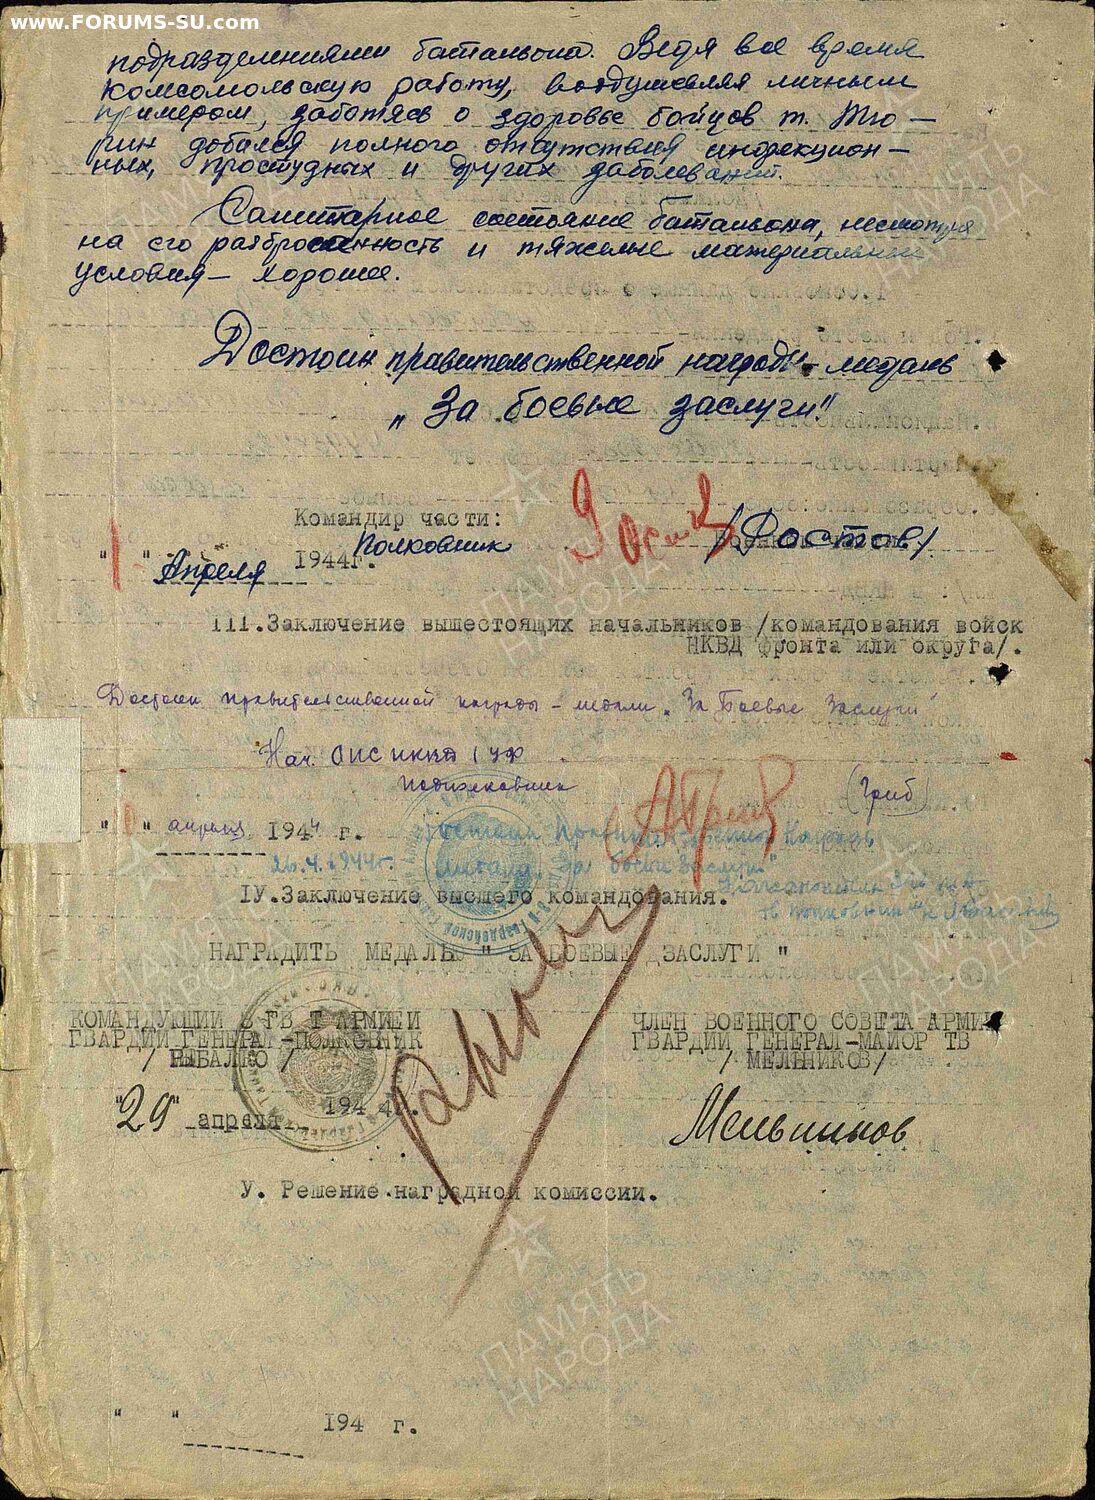 www.FORUMS-SU.com
подразделениями батальона. Ведя все время
комсомольскую работу, воодушевляя личным
примером, заботясь о здоровье бойцов т. Тю-
рин добился полного отсутствия инфекцион-
ных, простудных и других заболеваний.
Санитарное состояние батальона, несмотря
на его разбросанность и тяжелые материальные
условия — хорошее.
Достоин правительственной награды - медаль
„За боевые заслуги".
Командир части:
Полковник
/Достов/
"1" Апреля 1944г.
III.Заключение вышестоящих начальников /командования войск
НКВД фронта или округа/.
Достоин правительственной награды - медали „За Боевые Заслуги"
Нач. ОПС НКВД 1 УФ
подполковник
(Гриб)
" " апреля 1944 г.
Достоин Правительственной Награды
26.4.1944г. медаль „За боевые заслуги"
IV.Заключение высшего командования.
НАГРАДИТЬ МЕДАЛЬЮ " ЗА БОЕВЫЕ ЗАСЛУГИ "
КОМАНДУЮЩИЙ 3 ГВ Т АРМИЕЙ
ГВАРДИИ ГЕНЕРАЛ-ПОЛКОВНИК
/ РЫБАЛКО /
ЧЛЕН ВОЕННОГО СОВЕТА АРМИИ
ГВАРДИИ ГЕНЕРАЛ-МАЙОР ТВ
/ МЕЛЬНИКОВ/
"29" апреля 1944г.
Мельников
У. Решение наградной комиссии.
" " 194 г.
ПАМЯТЬ
НАРОДА